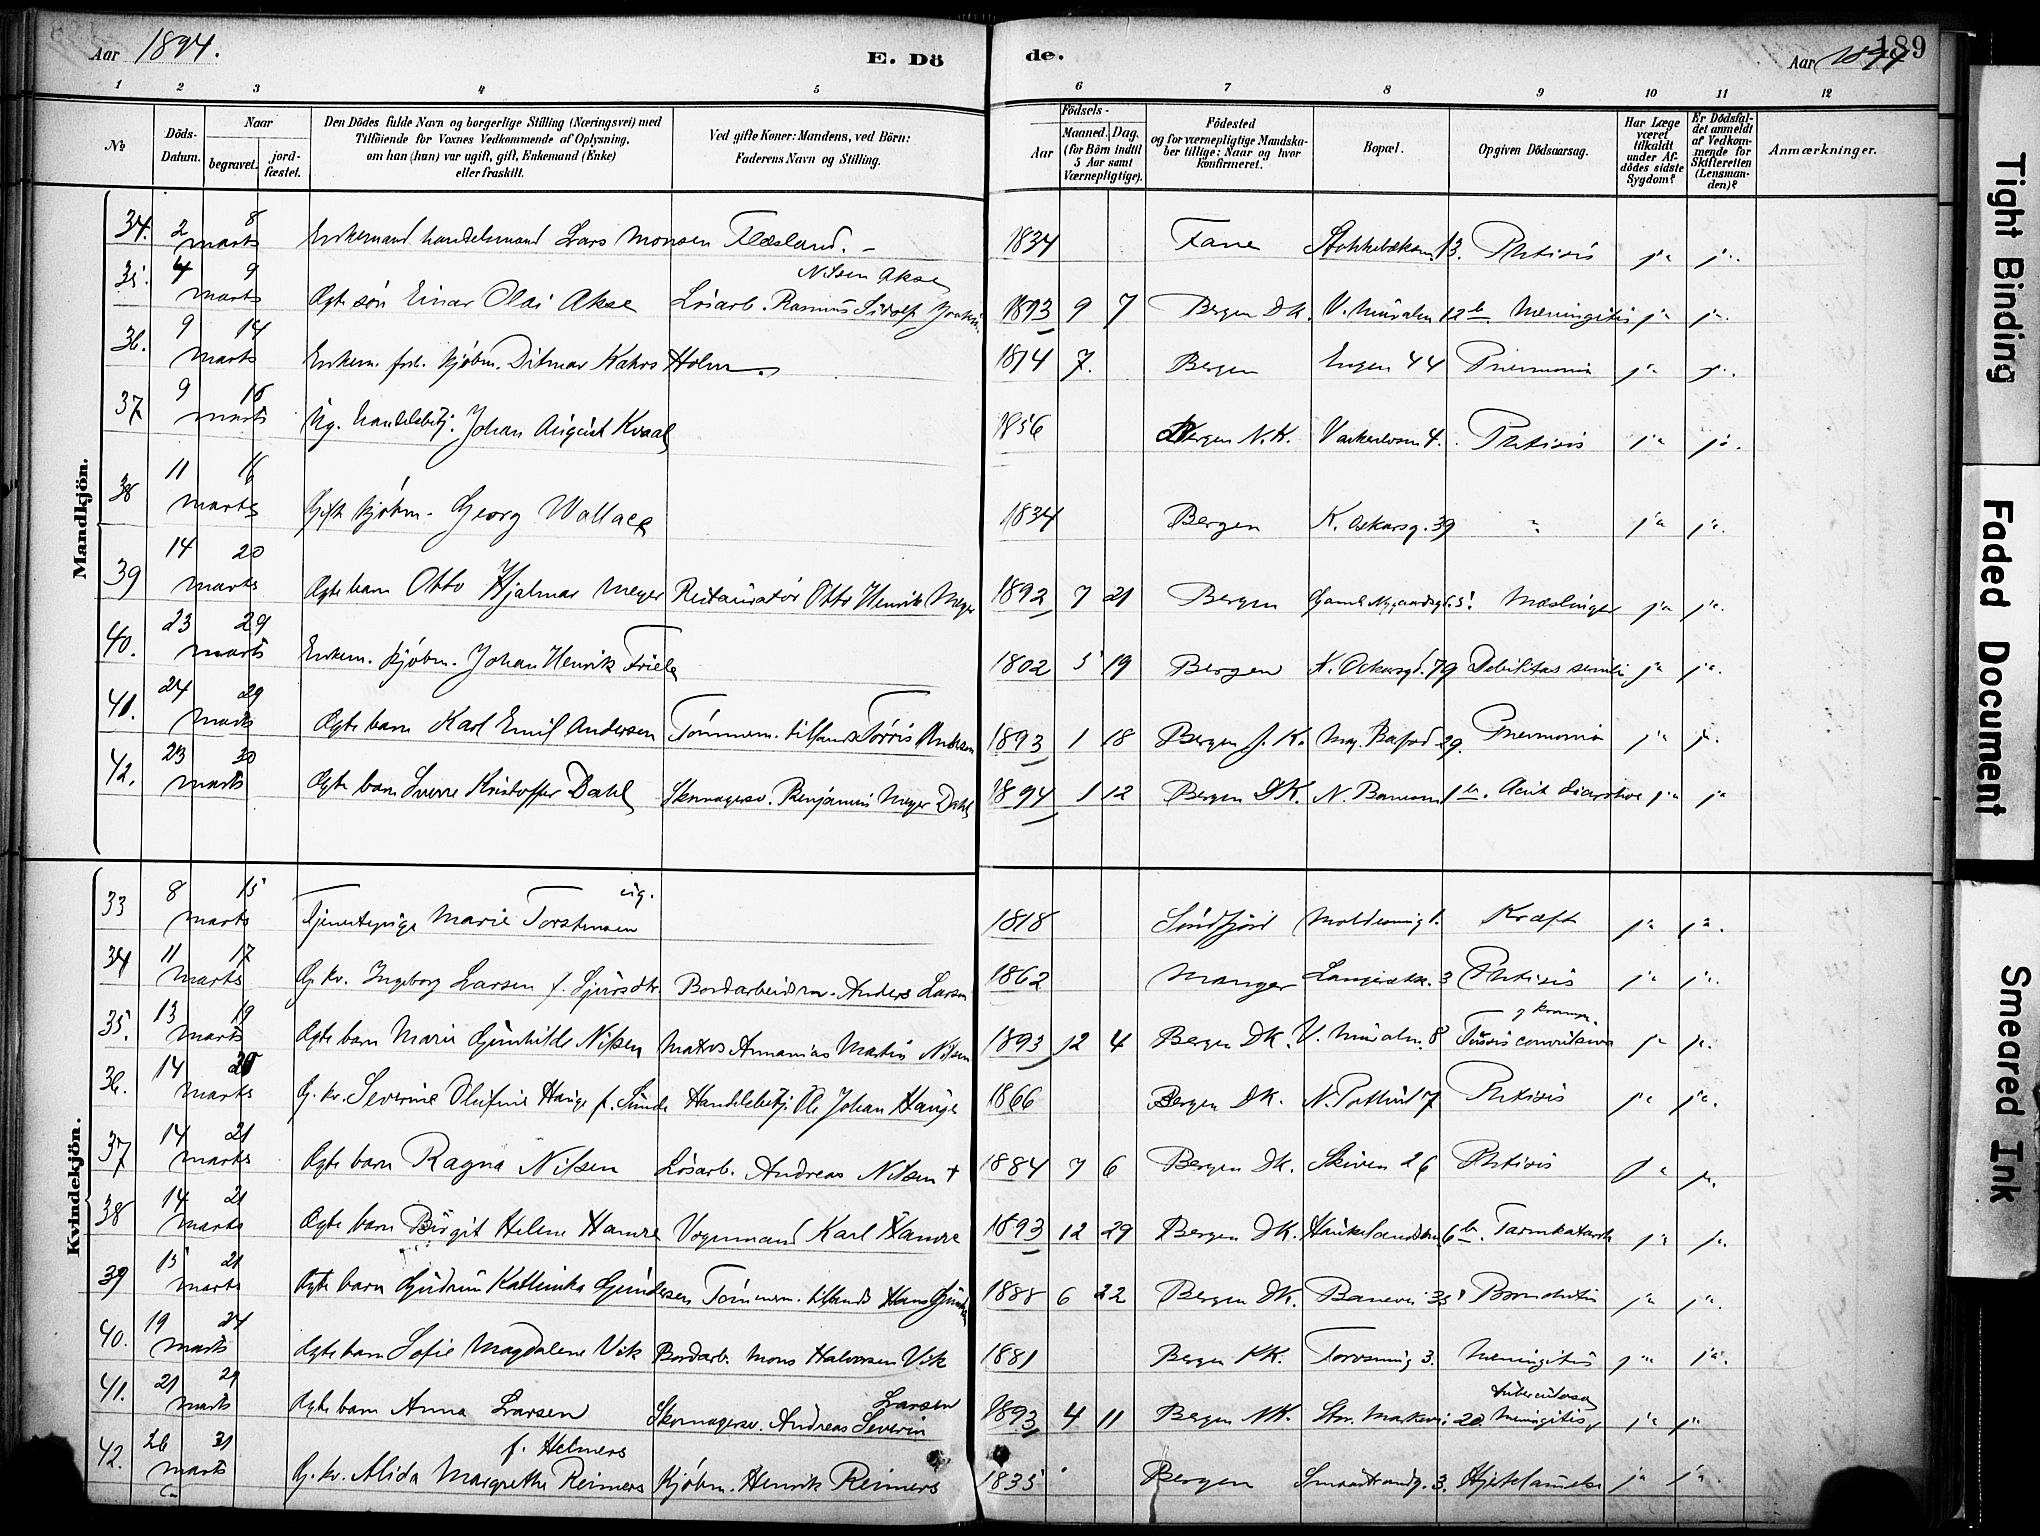 Aar 1894. E. Dö de. Aar 1894 189
1 2 3 4 5 6 7 8 9 10 11 12
No Döds-Datum. Naar begravet. jordfæstet. Den Dödes fulde Navn og borgerlige Stilling (Næringsvei) med Tilföiende for Voxnes Vedkommende af Oplysning, om han (hun) var ugift, gift, Enkemand (Enke) eller fraskilt. Ved gifte Koner: Mandens, ved Börn: Faderens Navn og Stilling. Födsels- Aar Maaned. Dag. (for Börn indtil 5 Aar samt Værnepligtige). Födested og for værnepligtige Mandskaber tillige: Naar og hvor konfirmeret. Bopæl. Opgiven Dödsaarsag. Har Læge været tilkaldt under Afdödes sidste Sygdom? Er Dödsfaldet anmeldt af Vedkommende for Skifteretten (Lensmanden)? Anmærkninger.
Mandkjön.
34. 2 marts 8 Enkemand handelsmand Lars Monsen Flæsland. 1834 Fane 13. Phtisis ja ja.
35. 4 marts 9 Ægte søn Einar Olai Akse Løsarb. Rasmus Nilsen Akse 1893 9 7 Bergen DK. V. Muralm. 12 b. Meningitis ja ja.
36. 9 marts 14 Enkem. forh. kjøbm. Ditmar Kahrs Holm. 1814 7. Bergen Engen 44 Pneumonia ja ja.
37 9 marts 16 Ug. handelsbetj. Johan August Kvaal 1856 Bergen N.K. 4. Phtisis ja ja.
38 11 marts 16 Gift kjøbm. Georg Wallace 1834 Bergen K. Oskarsg. 39 " ja ja.
39 14 marts 20 Ægte barn Otto Hjalmar Meyer Restauratør Otto Henrik Meyer 1892 7 21 Bergen Gamle Nygaardsgd. 5. Mæslinger ja ja.
40. 23 marts 29 Enkem. kjøbm. Johan Henrik Friele 1802 5 19 Bergen K. Oskarsgd. 79 Debilitas senilis ja ja.
41. 24 marts 29 Ægte barn Karl Emil Andersen Tømmerm. tilhands Tørris Andersen 1893 1 18 Bergen J.K. 29. Pneumonia ja ja.
42. 23 marts 30 Ægte barn Sverre Kristoffer Dahl Skomagersv. Benjamin Meyer Dahl 1894 1 12 Bergen DK. 1 b. Acut diarrhoe ja ja
Kvindekjön.
33 8 marts 15 Tjenestepige Marie Torstensen ug. 1818 Søndfjord 1. Kræft ja ja.
34 11 marts 17 G. kv. Ingeborg Larsen f. Sjursdtr. Bordarbeidsm. Anders Larsen 1862 Manger 3 Phtisis ja ja.
35. 13 marts 19 Ægte barn Marie Gunhilde Nilsen Matros Annanias Martin Nilsen 1893 12 4 Bergen DK. V. Muralm. 8 Tussis convulsiva ja ja.
36. 14 marts 20 G. kv. Severine Olufine Hauge f. Sunde Handelsbetj. Ole Johan Hauge 1866 Bergen DK. 7 Phtisis ja ja.
37 14 marts 21 Ægte barn Ragna Nilsen Løsarb. Andreas Nilsen + 1884 7 6 Bergen DK. Skiven 26 Phtisis ja ja.
38 14 marts 21 Ægte barn Birgit Helene Hamre Vognmand Karl Hamre 1893 12 29 Bergen DK. 6 b. Tarmkatarrh ja ja.
39 15 marts 21 Ægte barn Gudrun Kathinka Gundersen Tømmerm. tilhands Hans Gundersen 1888 6 22 Bergen DK. Banevei 35 Bronchitis ja ja.
40. 19 marts 24 Ægte barn Sofie Magdalene Vik Bordarb. Mons Halvorsen Vik 1881 Bergen KK. 3. Meningitis ja ja.
41. 21 marts 29 Ægte barn Anna Larsen Skomagersv. Andreas Severin Larsen 1893 4 11 Bergen NK. 20. Meningitis tuberculosa ja ja
42. 26 marts 31 G. kv. Alida Margrethe Reimers f. Helmers Kjøbm. Henrik Reimers 1835 Bergen Smaastrandg. 3. Hjertelammelse ja ja.
Tight Binding
Faded Document
Smeared Ink